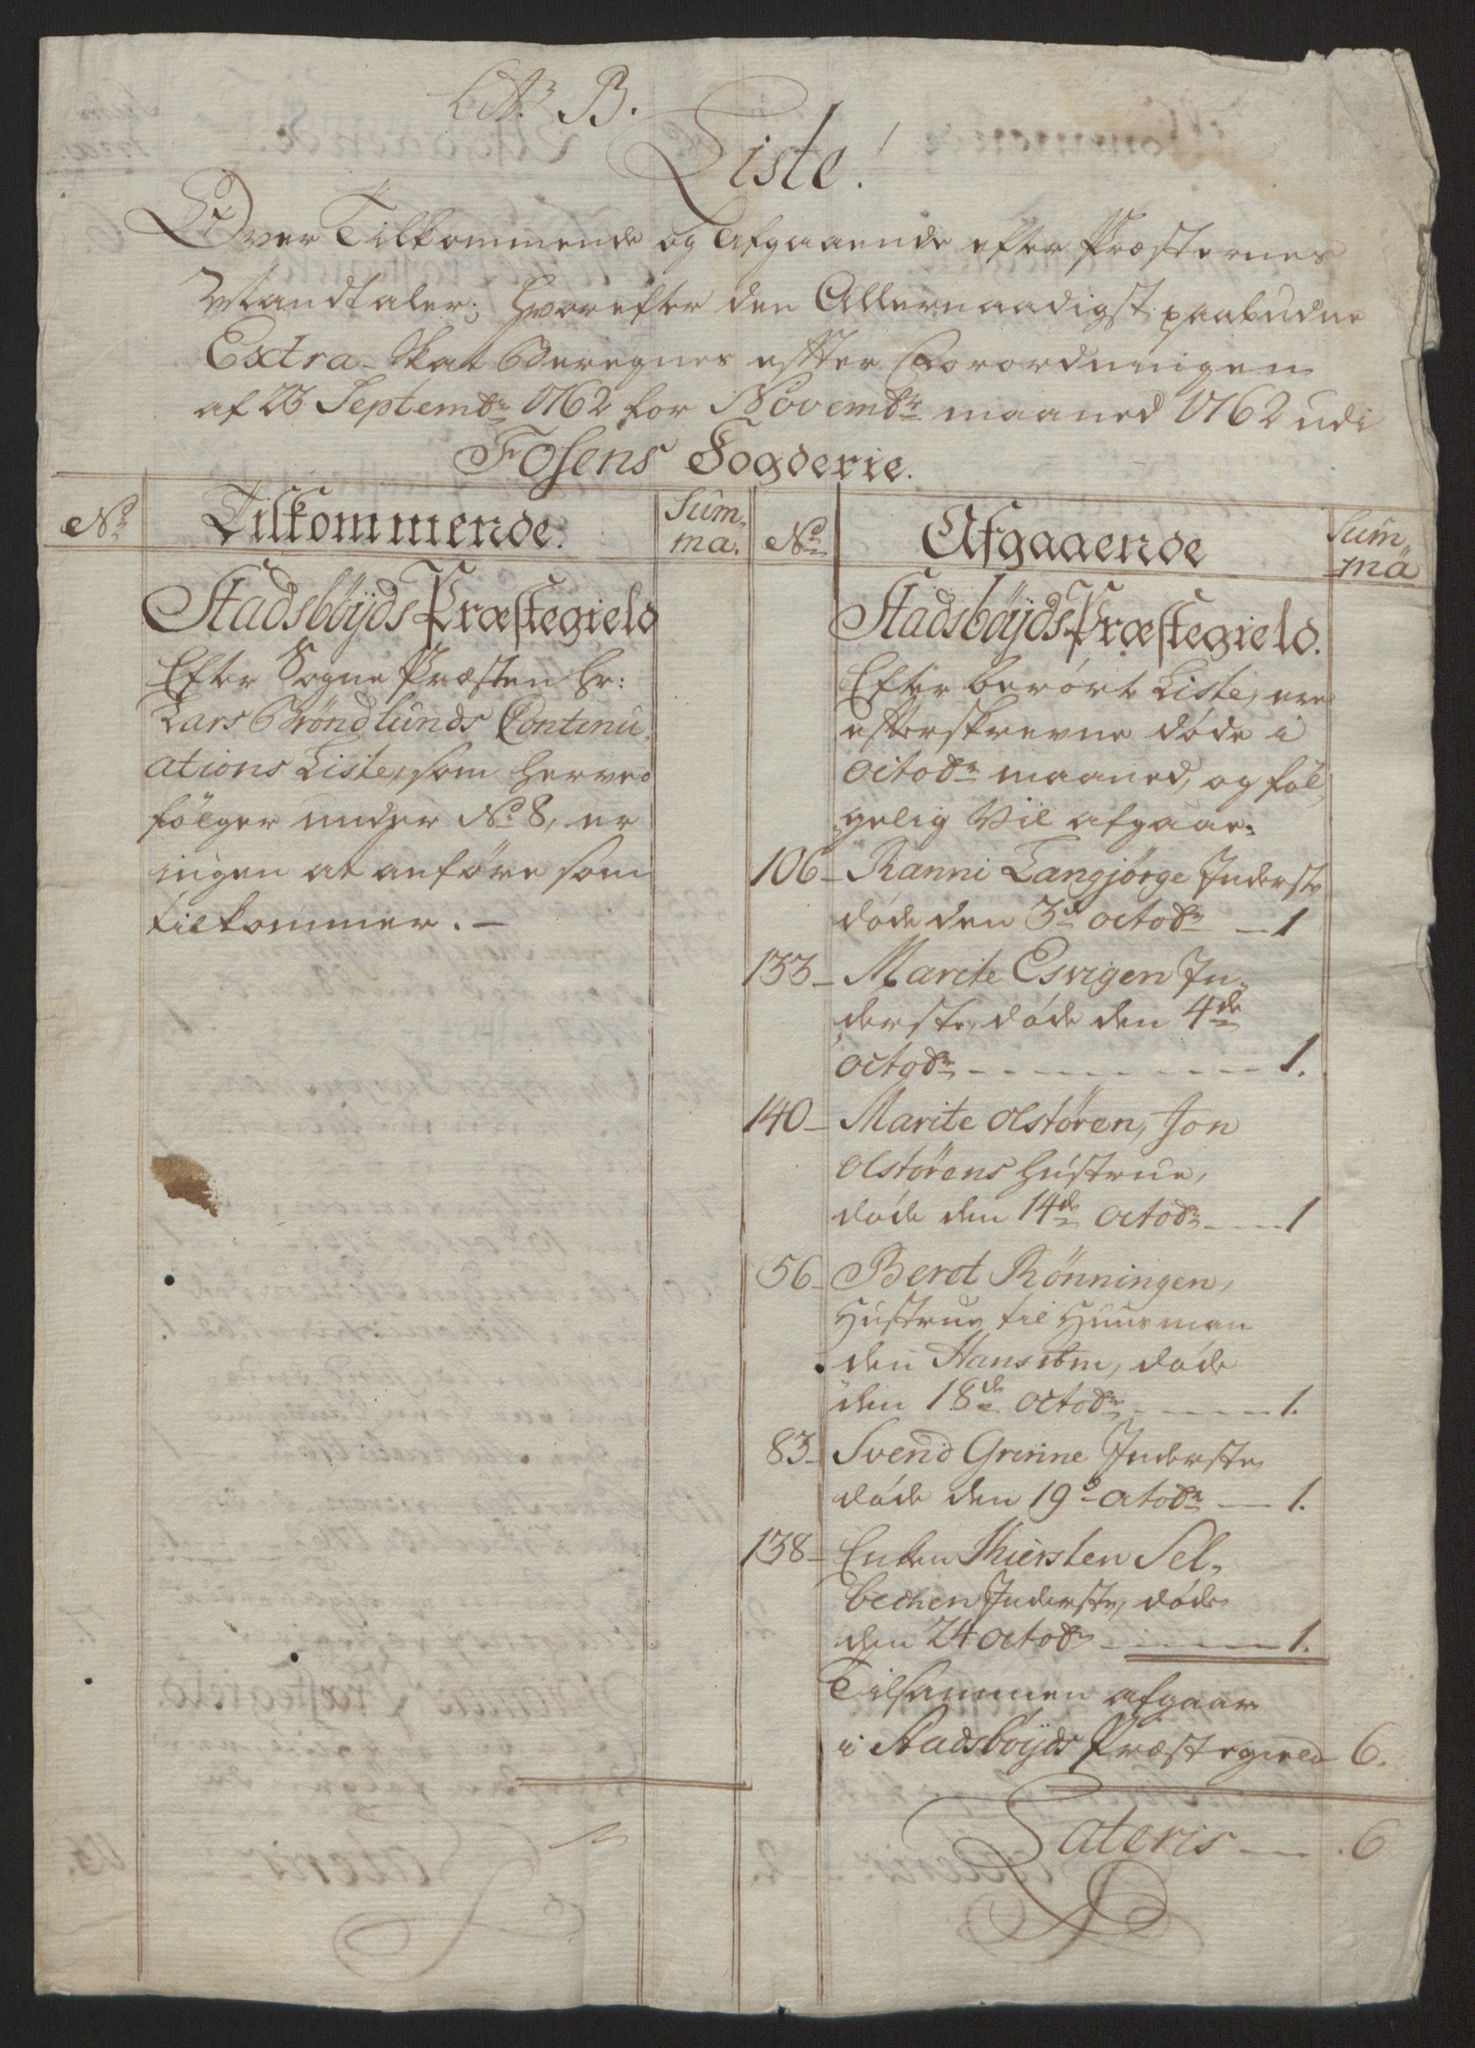 Litr. B.
Liste!
Over Tilkommende og Afgaaende efter Præsternes
Mandtaler; hvorefter den Allernaadigst paabudne
Extra-Skat Beregnes efter Forordningen
af 23 Septembr 1762 for Novembr maaned 1762 udi
Fosens Fogderie.
No
Tilkommende.
Sum-
ma.
Stadsbøyds Præstegield
Efter Sogne Præsten Hr:
Lars Brøndlunds Continu-
ations Liste, som herved
følger under No 8, er
ingen at anføre som
tilkommer. —
No
Afgaaende
Sum-
ma
Stadsbøyds Præstegield.
Efter berørt Liste, ere
efterskrevne døde i
octobr maaned, og føl-
gelig Vil afgaae:
106 - Ranni Langjørge Inderste
døde den 3d octobr — 1
133 - Marite Esvigen In-
derste, døde den 4de
octobr - - - - - - - 1.
140 - Marite Olstøren, Jon
Olstørens hustrue,
døde den 14de octobr - - - 1
56 - Beret Rønningen,
Hustrue til Huusman
den Hans ibm, døde
den 18de octobr - - - - 1.
83 - Svend Grinne Inderste
døde den 19d octobr — 1.
138 - Enken Kiersten Sel-
bechen Inderste, døde
den 24 octobr - - - - 1.
Tilsammen afgaar
i Stadsbøyds Præstegield 6.
Lateris — 6